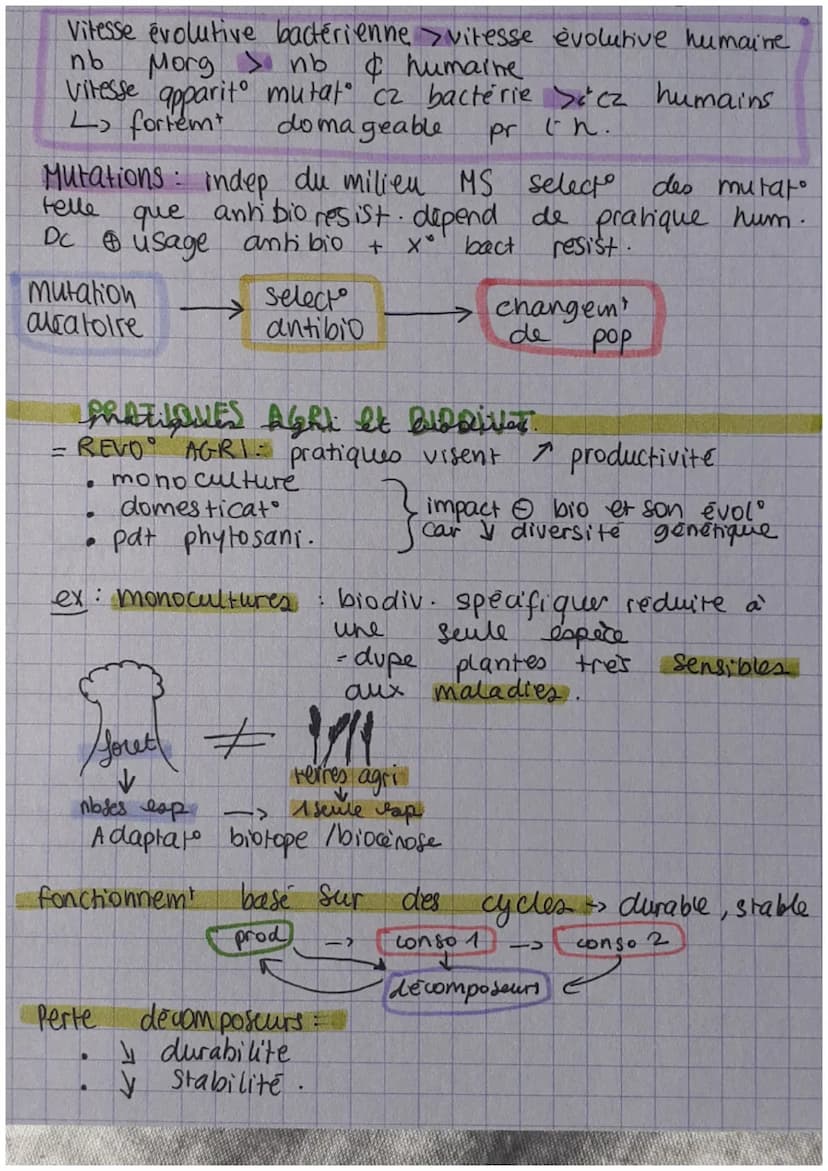 Vitesse évolutive bactérienne > vitesse évolutive humaine
nb Morg > nb ¢ humaine
Vitesse apparit° mutat° cz bactérie > cz humains
↳ fortemt domageable pr l'h.
Mutations : indep du milieu MS select° des mutat°
telle que antibioresist. dépend de pratique hum.
Dc ⊕ usage antibio + x° bact resist.
mutation aléatoire → select° antibio → changemt de pop
PRATIQUES AGRI et BIODIVT.
= REVO° AGRI : pratiques visent ↗ productivité
• monoculture
• domesticat°
• pdt phytosani.
} impact ⊖ bio et son évol°
car ↓ diversité génétique
ex : monocultures : biodiv. spécifique réduite à
une seule espèce
= dupe plantes très sensibles
aux maladies.
foret ≠ terres agri
↓ ↓
nbses esp → 1 seule esp
Adaptat° biotope / biocénose
fonctionnemt basé sur des cycles → durable, stable
prod → conso 1 → conso 2
décomposeurs
Perte décomposeurs =
• ↘ durabilité
• ↘ stabilité.